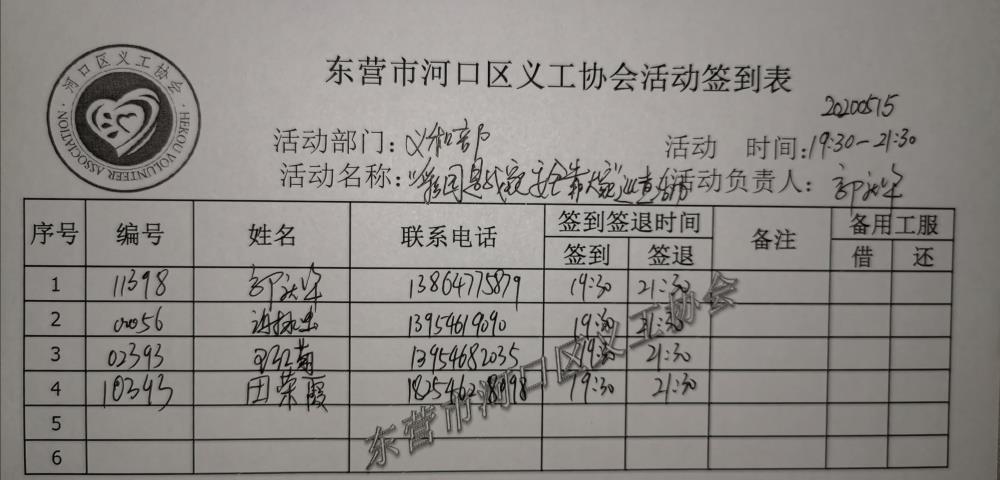 河口区义工协会
HEKOU VOLUNTEER ASSOCIATION
东营市河口区义工协会活动签到表
20200515
活动部门：义和部 活动 时间：19:30-21:30
活动名称："家园是我家安全靠大家"巡查活动 活动负责人：郭
序号 编号 姓名 联系电话 签到签退时间 备注 备用工服
签到 签退 借 还
1 11398 郭 13864775879 19:30 21:30
2 00056 13954619090 19:30 21:30
3 02393 菊 13954682035 19:30 21:30
4 10393 田荣霞 18254628998 19:30 21:30
5
6
东营市河口区义工协会